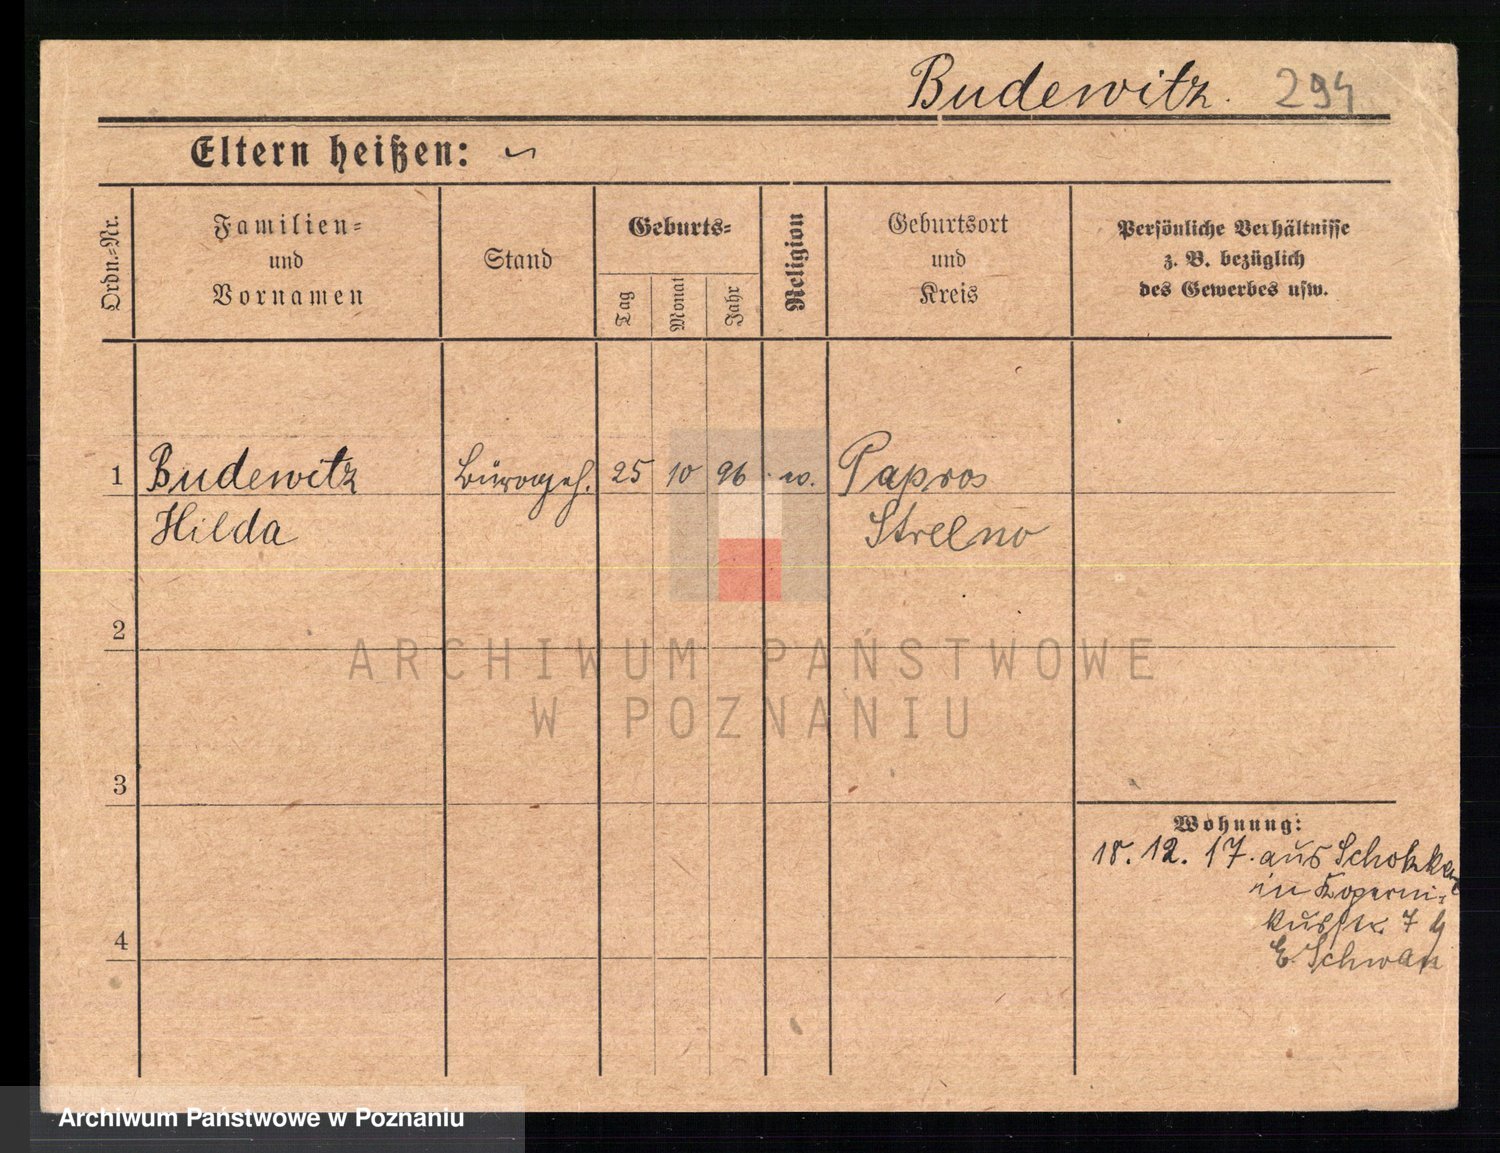 Budewitz. 294
Eltern heißen:
Ordn.=Nr.
Familien=
und
Vornamen
Stand
Geburts=
Tag
Monat
Jahr
Religion
Geburtsort
und
Kreis
Persönliche Verhältnisse
z. B. bezüglich
des Gewerbes usw.
1 Budewitz Bürogeh. 25 10 96 Papros
Hilda Strelno
2
3
4
Wohnung:
18. 12. 17. aus Schokken
in Koperni-
kusstr. 7
E. Schwan
ARCHIWUM PAŃSTWOWE
W POZNANIU
Archiwum Państwowe w Poznaniu